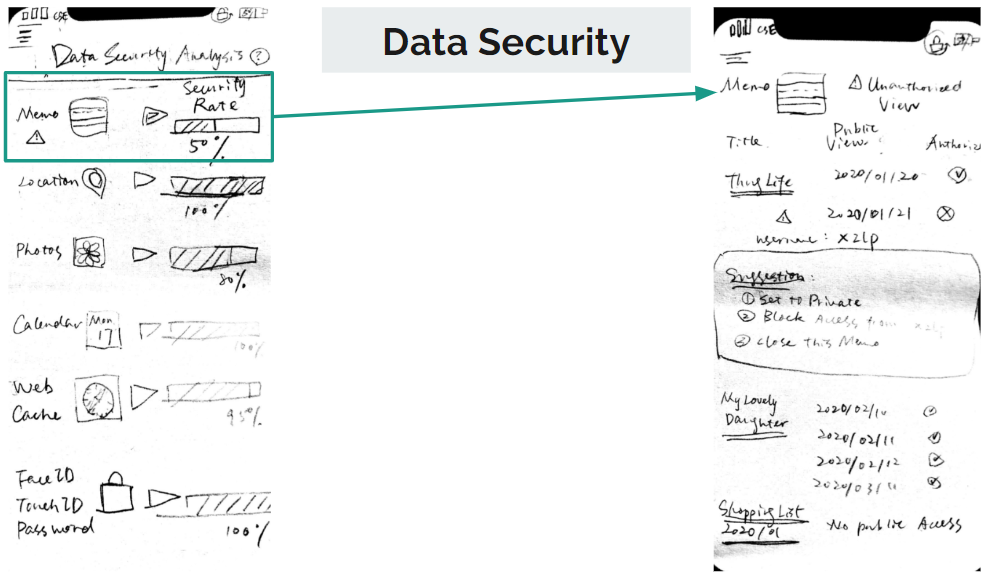 Data Security
CSE
Data Security Analysis ?
Security
Rate
Memo
50%
Location
100%
Photos
80%
Calendar
Mon
17
100%
Web
Cache
95%
Face ID
Touch ID
Password
100%
CSE
Memo
Unauthorized
View
Title
Public
View
Authoriz
Thug Life
2020/01/20
2020/01/21
username: xzlp
Suggestion:
① Set to Private
② Block Access from xzlp
③ Close this Memo
My Lovely
Daughter
2020/02/10
2020/02/11
2020/02/12
2020/03/11
Shopping List
2020/01
No public Access